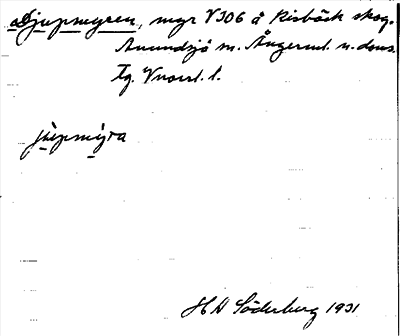 Djupmyren, myr V306 å Risbäck skog.
Anundsjö sn. Ångerml. n. doms.
Tg. Vnorrl. l.
jùpmỳra
HW Söderberg 1931